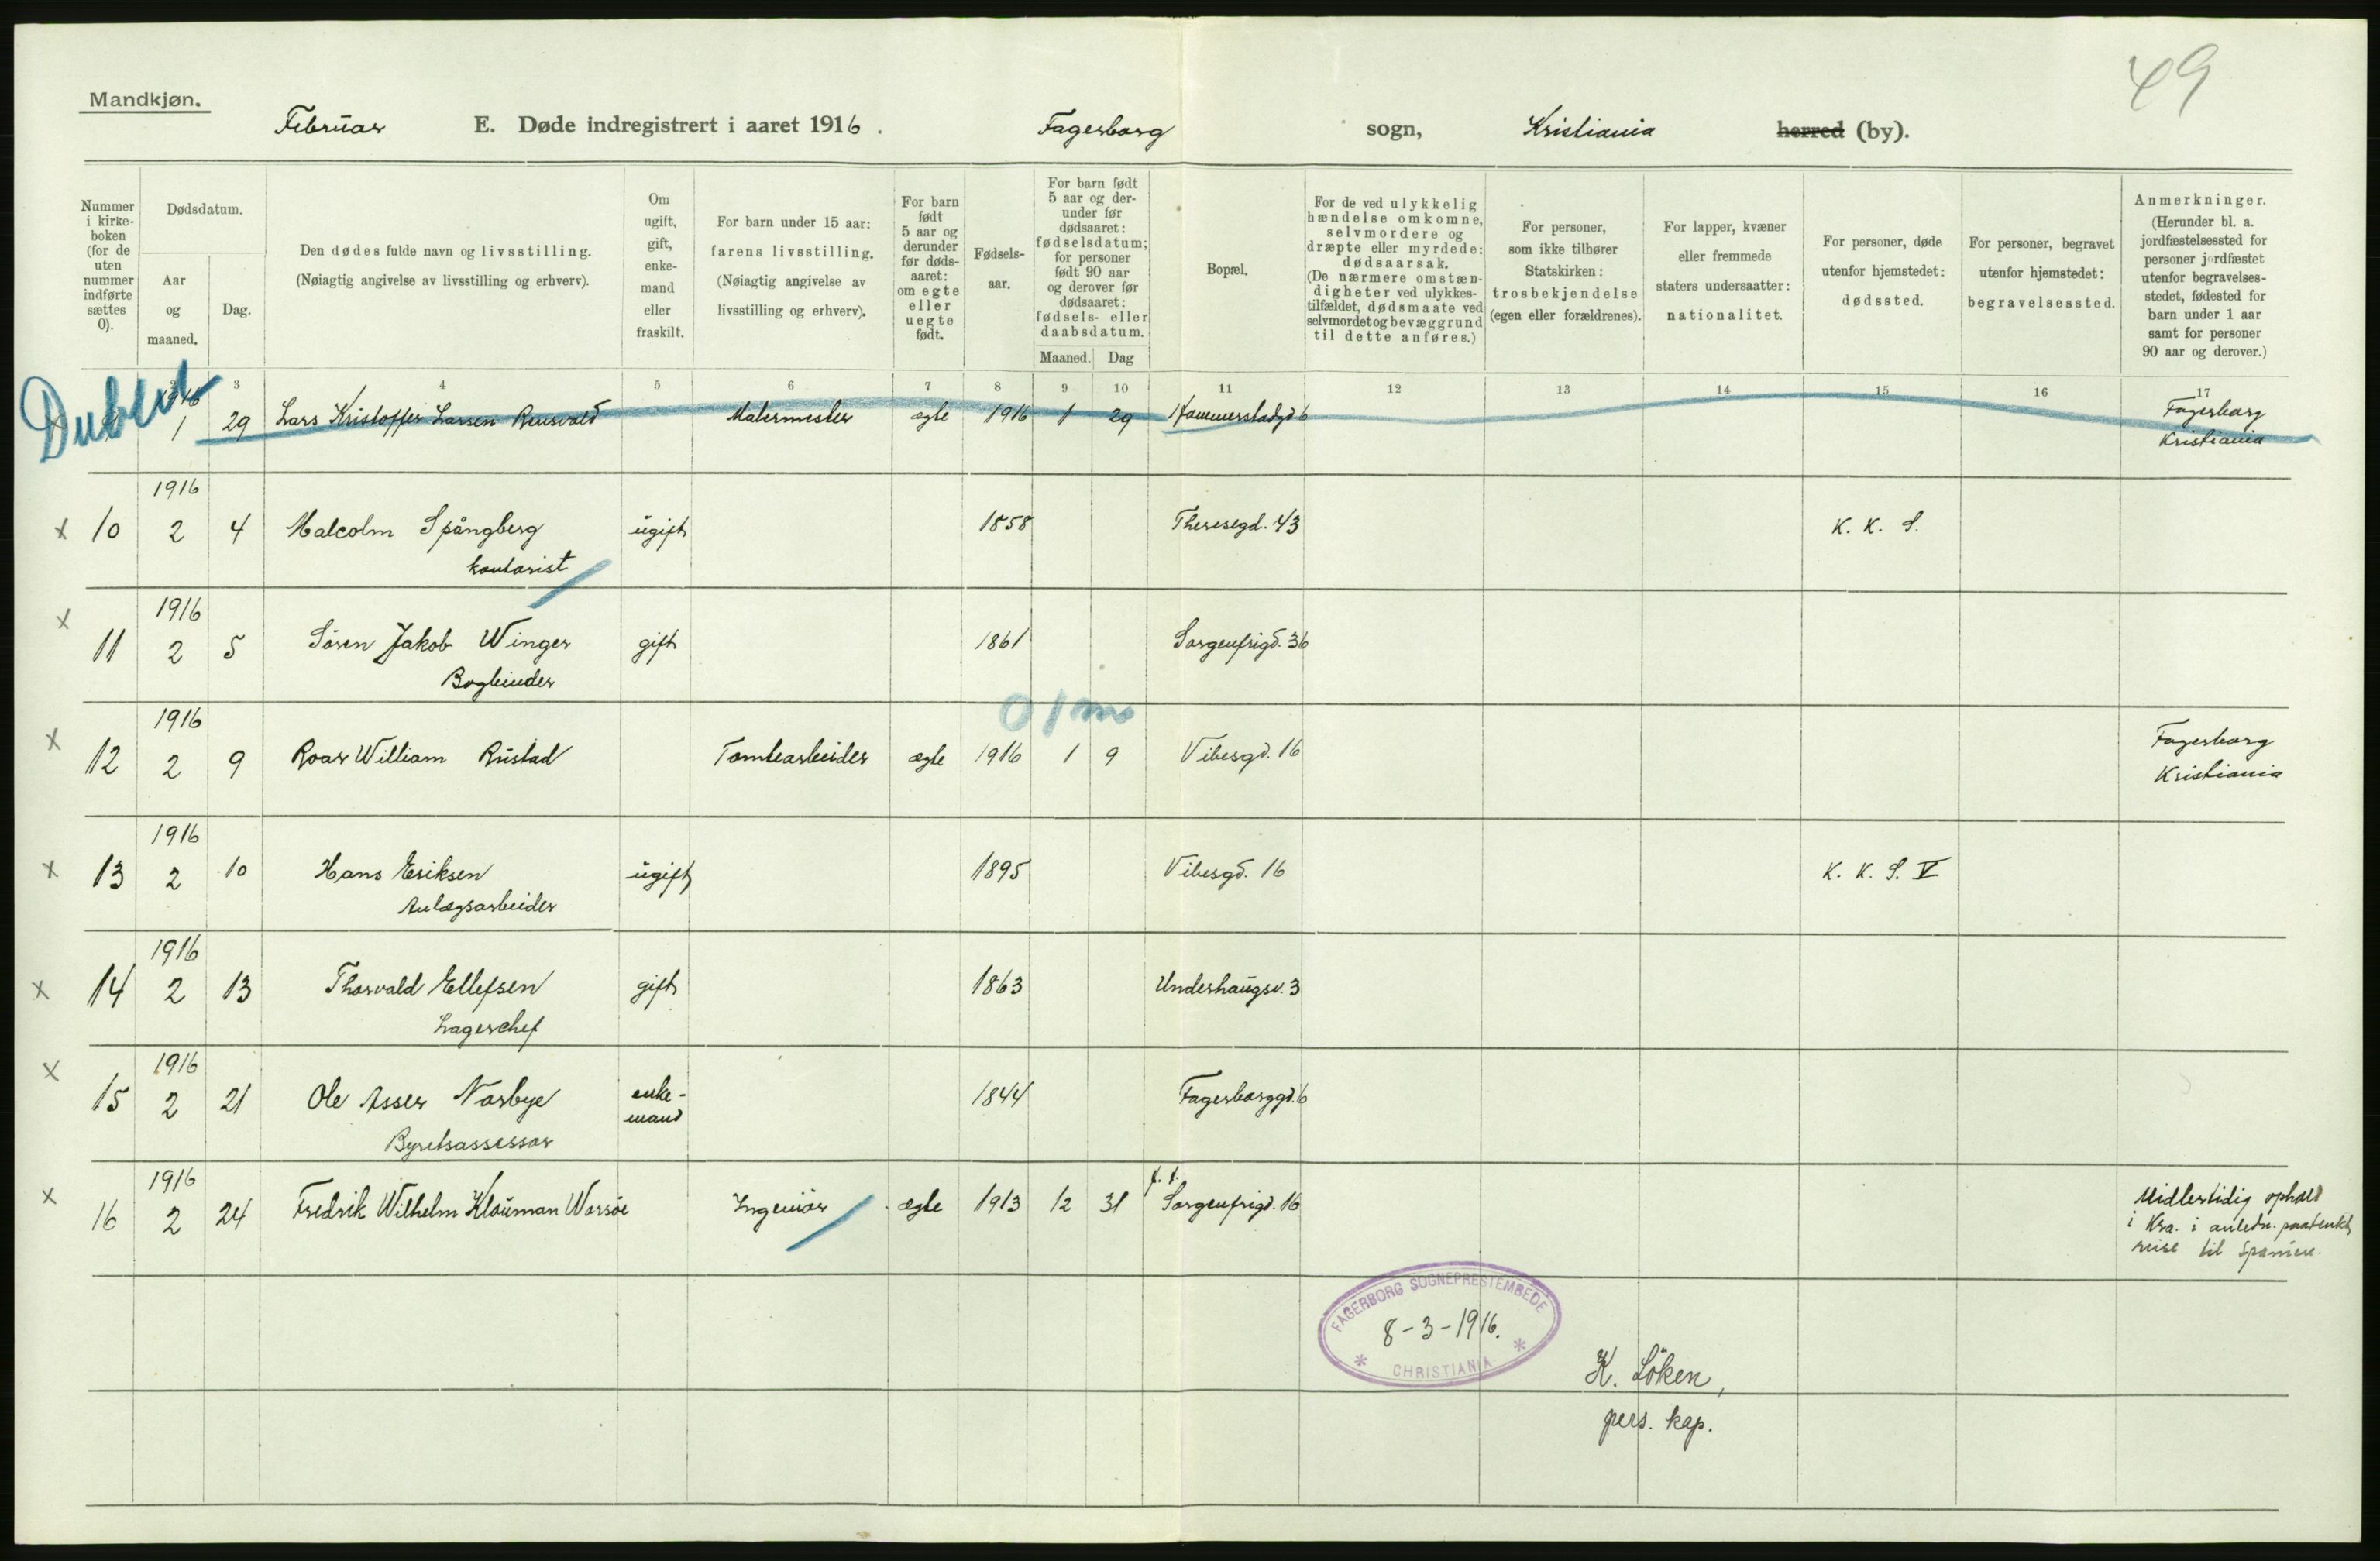 49
Mandkjøn.
Februar E. Døde indregistrert i aaret 1916. Fagerborg sogn, Kristiania herred (by).
Nummer i kirkeboken (for de uten nummer indførte sættes 0).
Dødsdatum.
Aar og maaned.
Dag.
Den dødes fulde navn og livsstilling.
(Nøiagtig angivelse av livsstilling og erhverv).
Om ugift, gift, enkemand eller fraskilt.
For barn under 15 aar: farens livsstilling.
(Nøiagtig angivelse av livsstilling og erhverv).
For barn født 5 aar og derunder før dødsaaret: om egte eller uegte født.
Fødselsaar.
For barn født 5 aar og derunder før dødsaaret: fødselsdatum; for personer født 90 aar og derover før dødsaaret: fødsels- eller daabsdatum.
Maaned. Dag
Bopæl.
For de ved ulykkelig hændelse omkomne, selvmordere og dræpte eller myrdede: dødsaarsak.
(De nærmere omstændigheter ved ulykkestilfældet, dødsmaate ved selvmordet og bevæggrund til dette anføres.)
For personer, som ikke tilhører Statskirken: trosbekjendelse (egen eller forældrenes).
For lapper, kvæner eller fremmede staters undersaatter: nationalitet.
For personer, døde utenfor hjemstedet: dødssted.
For personer, begravet utenfor hjemstedet: begravelsessted.
Anmerkninger.
(Herunder bl. a. jordfæstelsessted for personer jordfæstet utenfor begravelsesstedet, fødested for barn under 1 aar samt for personer 90 aar og derover.)
3 4 5 6 7 8 9 10 11 12 13 14 15 16 17
1 29 Lars Kristoffer Larsen Malermester egte 1916 1 29 Hammerstadgd 6 Fagerborg
Kristiania
1916
x 10 2 4 Malcolm Spångberg ugift 1858 Theresegd. 43 K. K. S.
kontorist
1916
x 11 2 5 Sören Jakob Winger gift 1861 Sorgenfrigd. 36
Bogbinder
0 1 m
1916
x 12 2 9 Roar William Rustad Tomtearbeider egte 1916 1 9 Vibesgd. 16 Fagerborg
Kristiania
1916
x 13 2 10 Hans Eriksen ugift 1895 Vibesgd. 16 K. K. S. V
Anlægsarbeider
1916
x 14 2 13 Thorvald Ellefsen gift 1863 Underhaugsv. 3
Lagerchef
1916
x 15 2 21 Ole Asser Norbye enke-mand 1844 Fagerborggd. 6
Byretsassessor
1916
x 16 2 24 Fredrik Wilhelm Klouman Worsöe Ingeniör egte 1913 12 31 Sorgenfrigd. 16 Midlertidig ophold
i Kra. i anledn. paatenkt
reise til Spanien.
FAGERBORG SOGNEPRESTEMBEDE
8-3-1916.
* CHRISTIANIA *
K. Löken,
pers. kap.